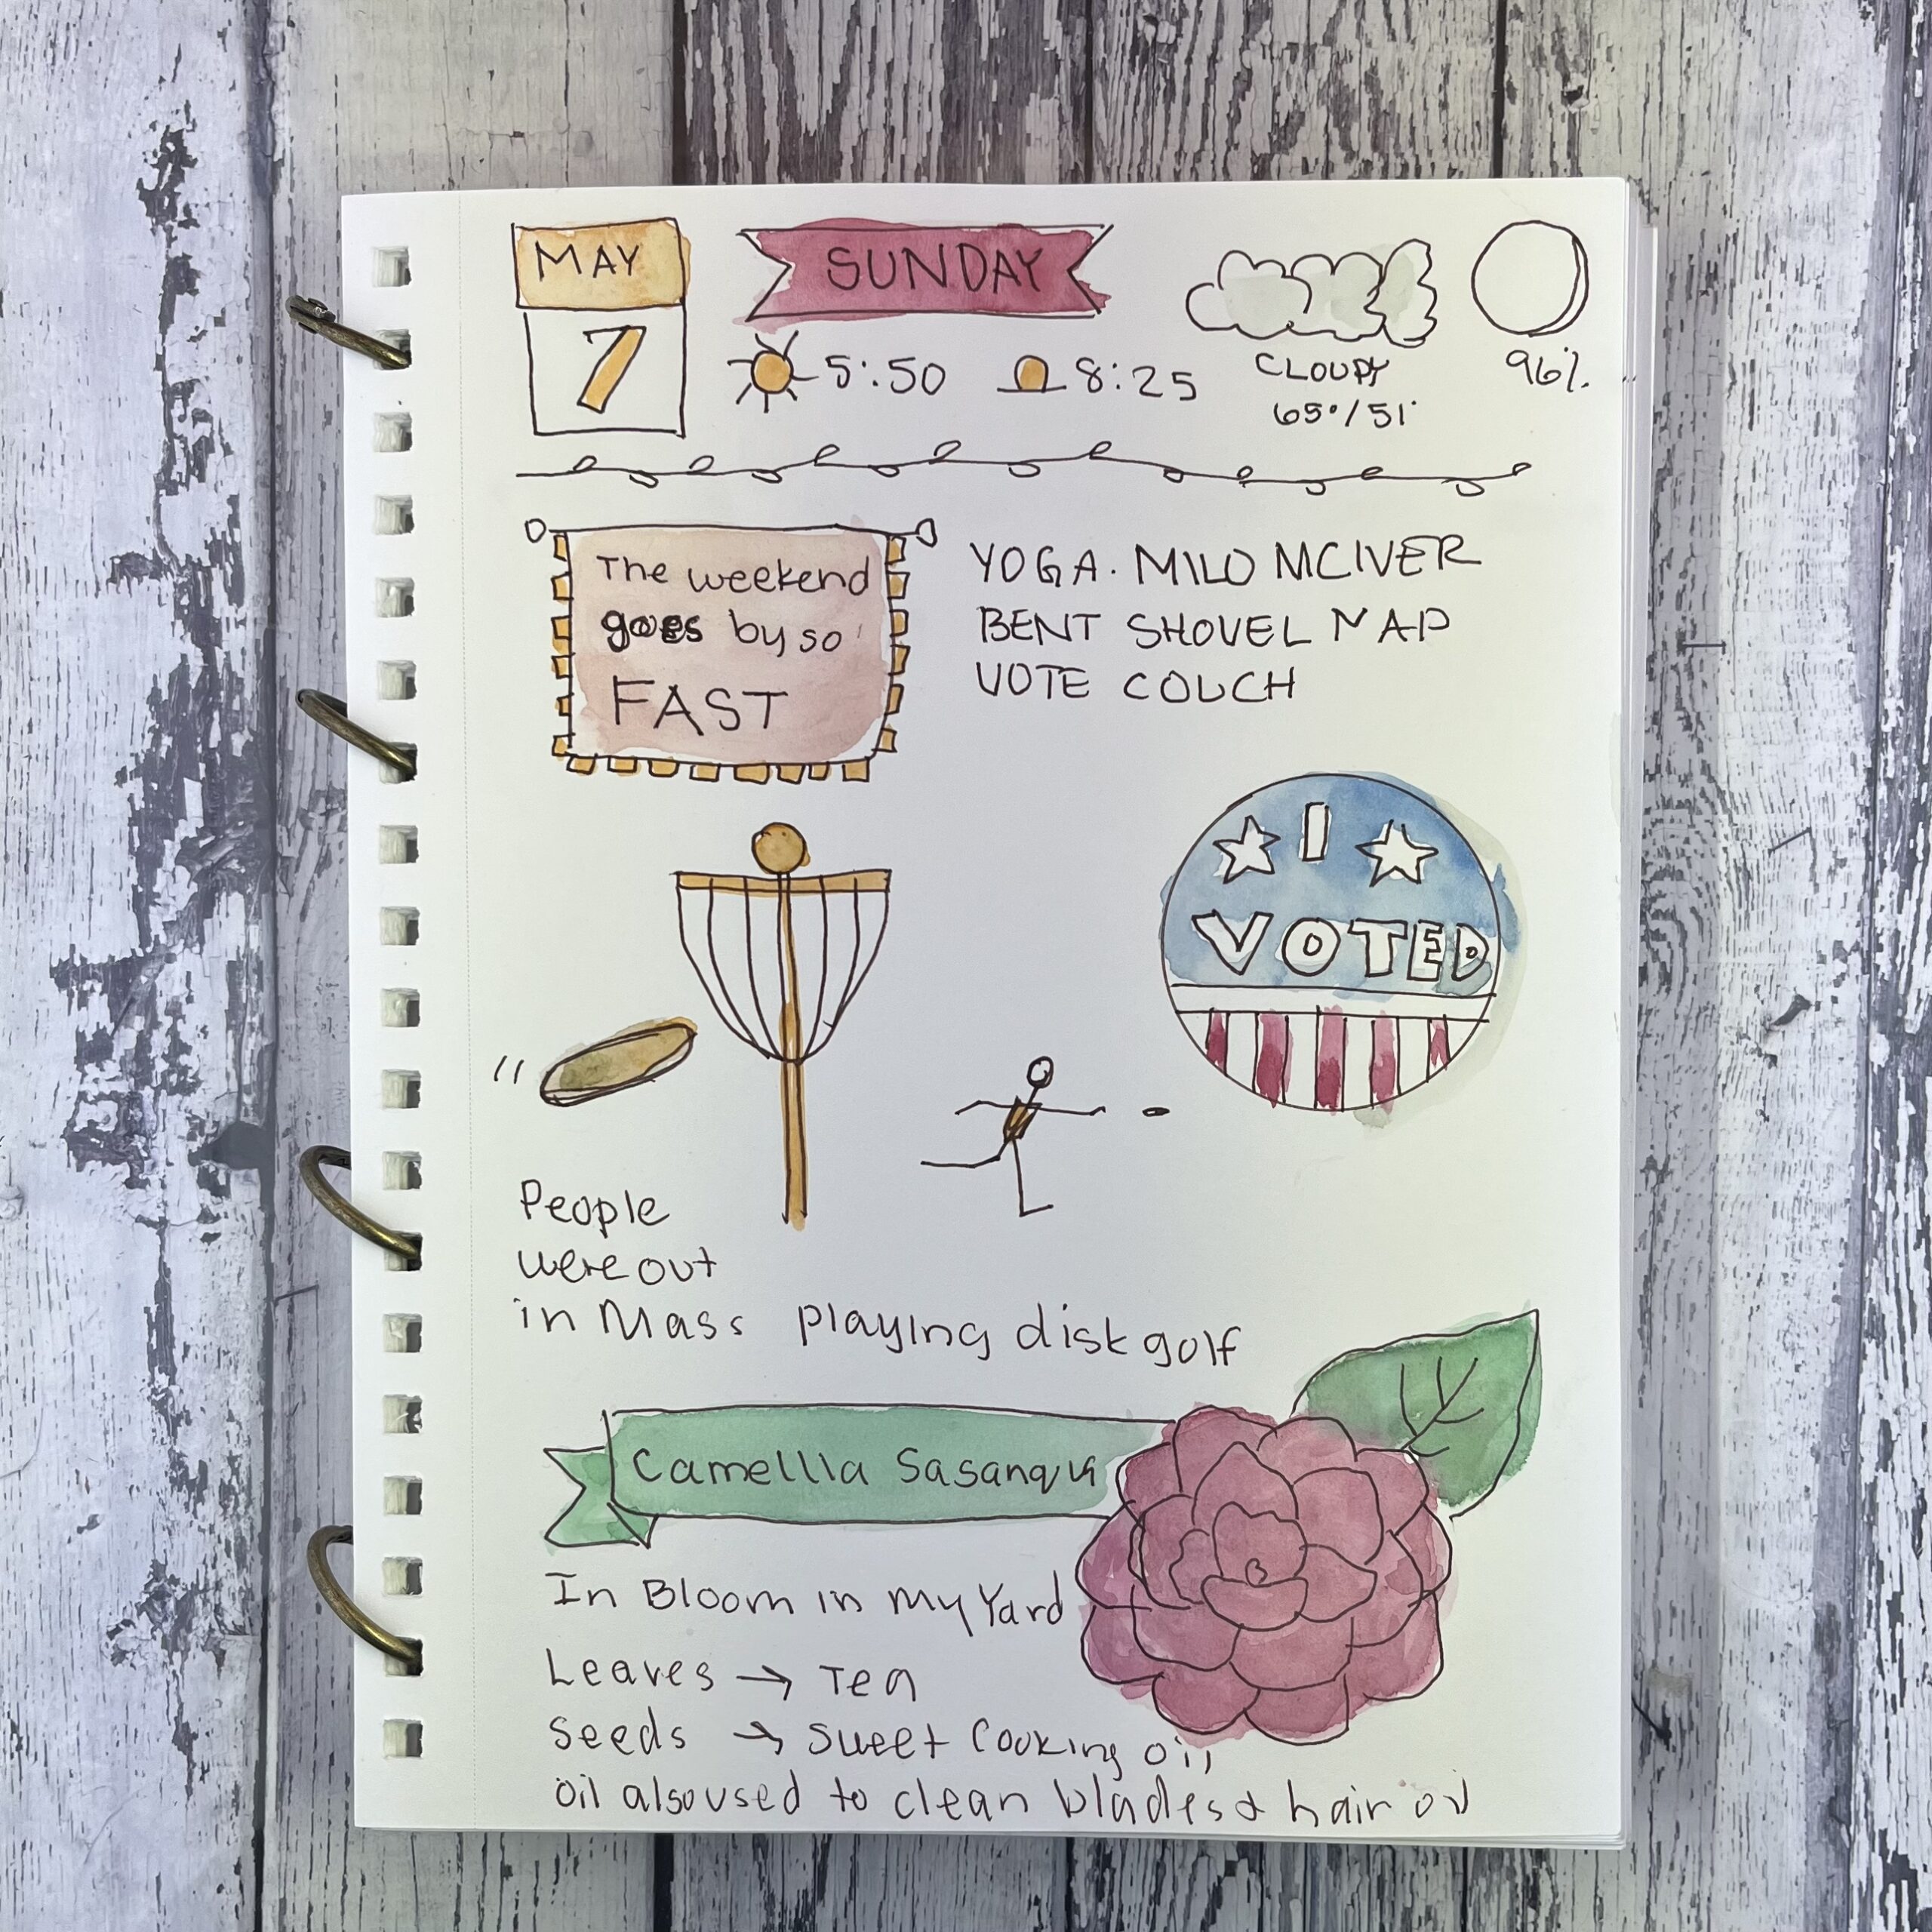 MAY
7
SUNDAY
5:50
8:25
CLOUDY
65°/51°
96%
The weekend
goes by so
FAST
YOGA. MILO MCIVER
BENT SHOVEL NAP
VOTE COUCH
I
VOTED
People
were out
in Mass playing disk golf
Camellia Sasanqua
In Bloom in my Yard
Leaves → Tea
Seeds → Sweet Cooking oil
oil also used to clean blades & hair oil